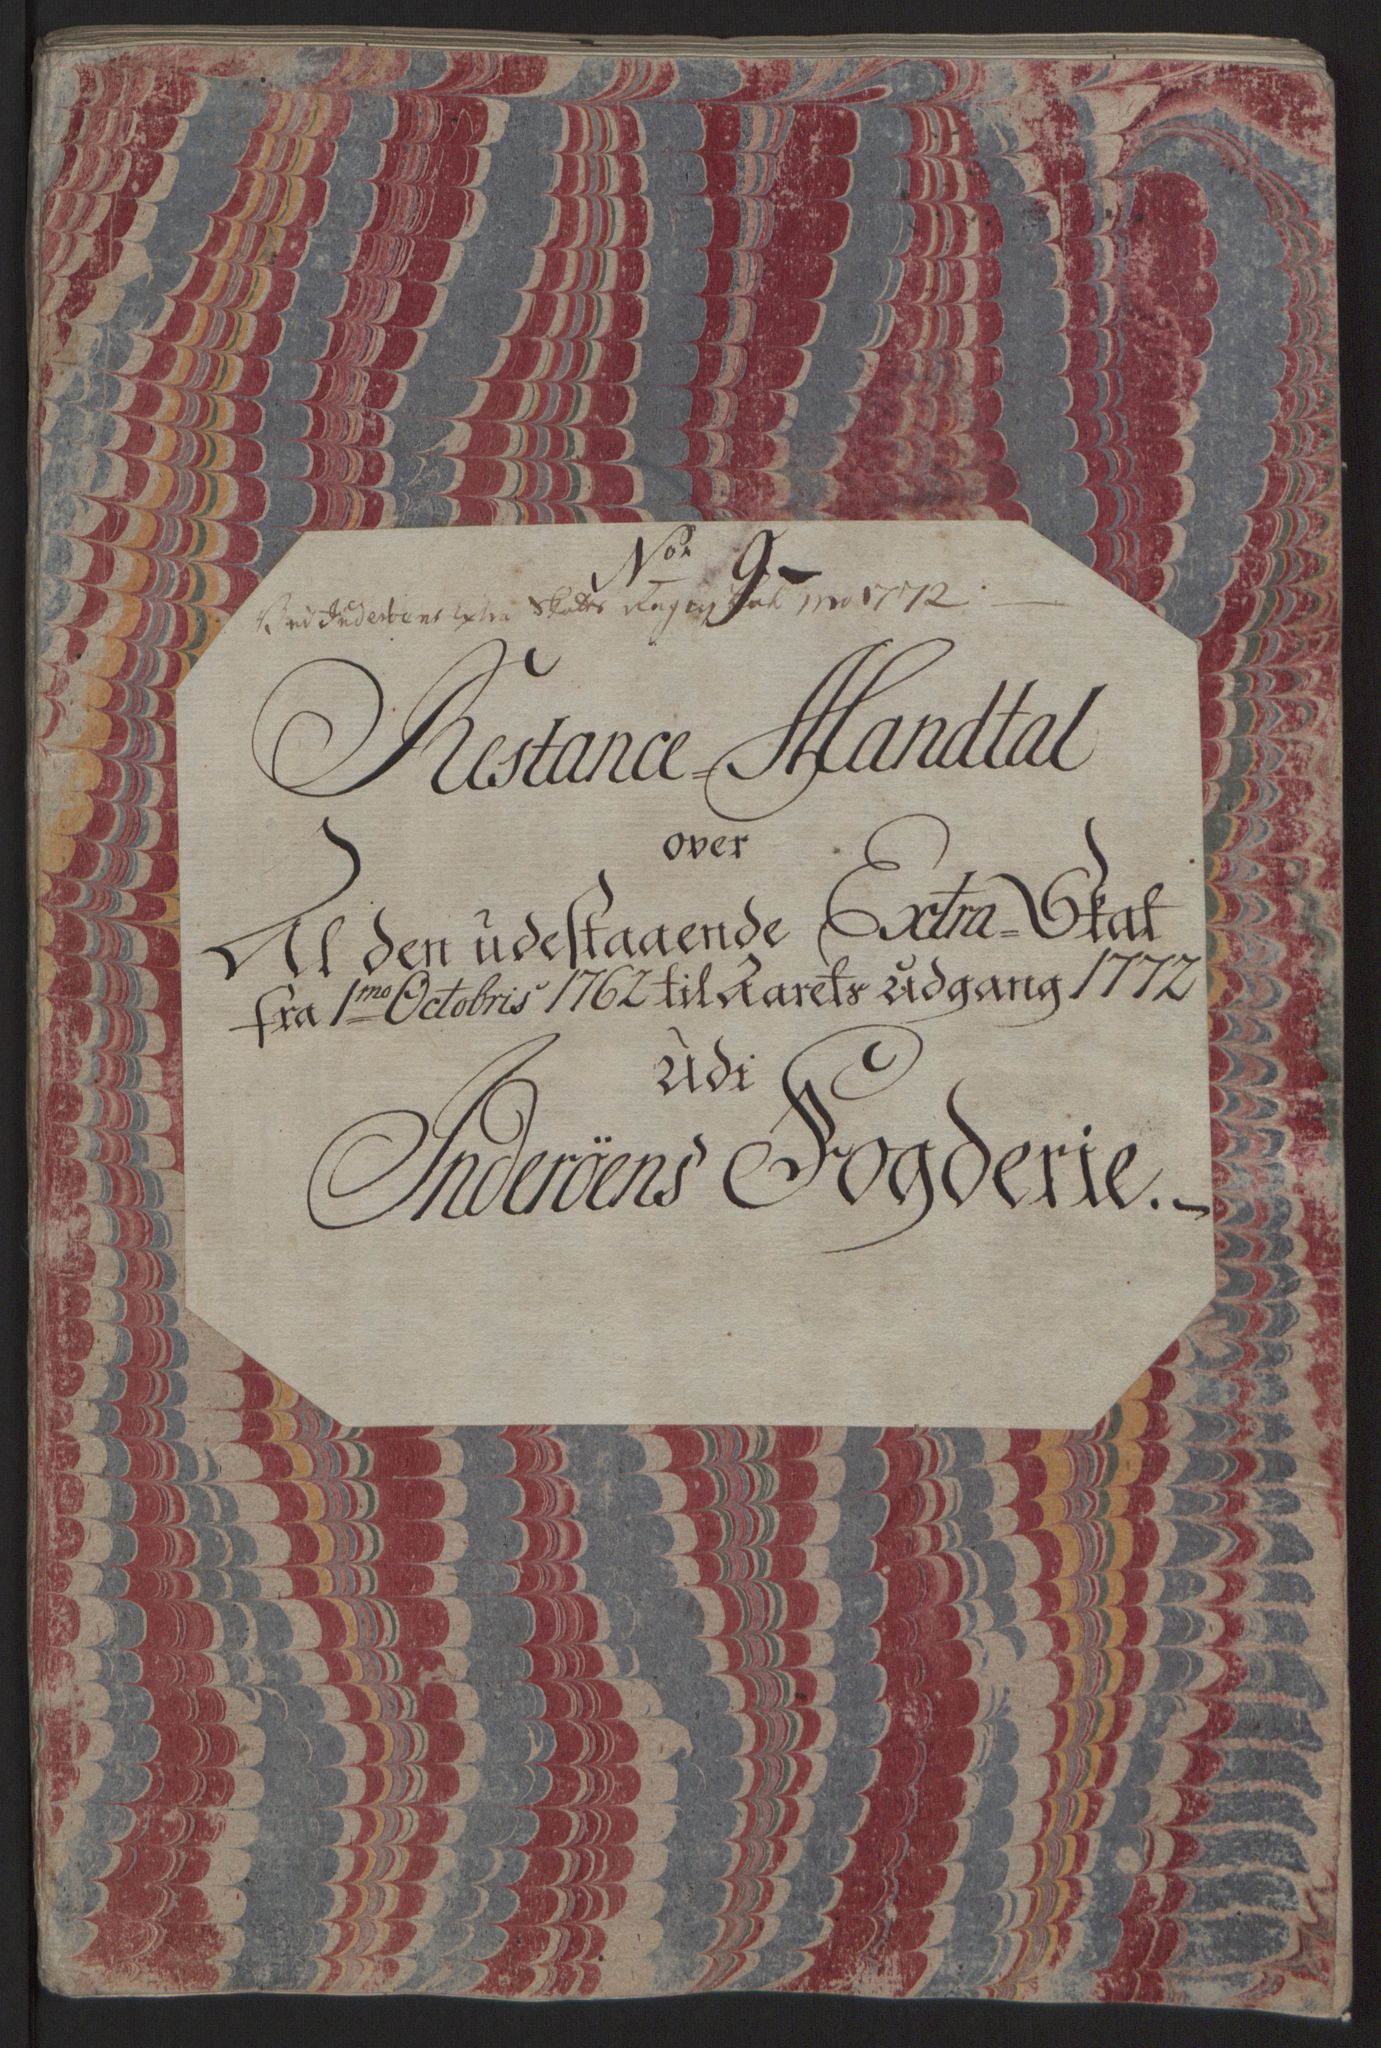 No. 9
Ved Inderöens Extra Skatts 1772
Restance=Mandtal
over
Al den udestaaende Extra=Skat
fra 1mo Octobris 1762 til Aarets Udgang 1772
Udi
Inderöens Fogderie.